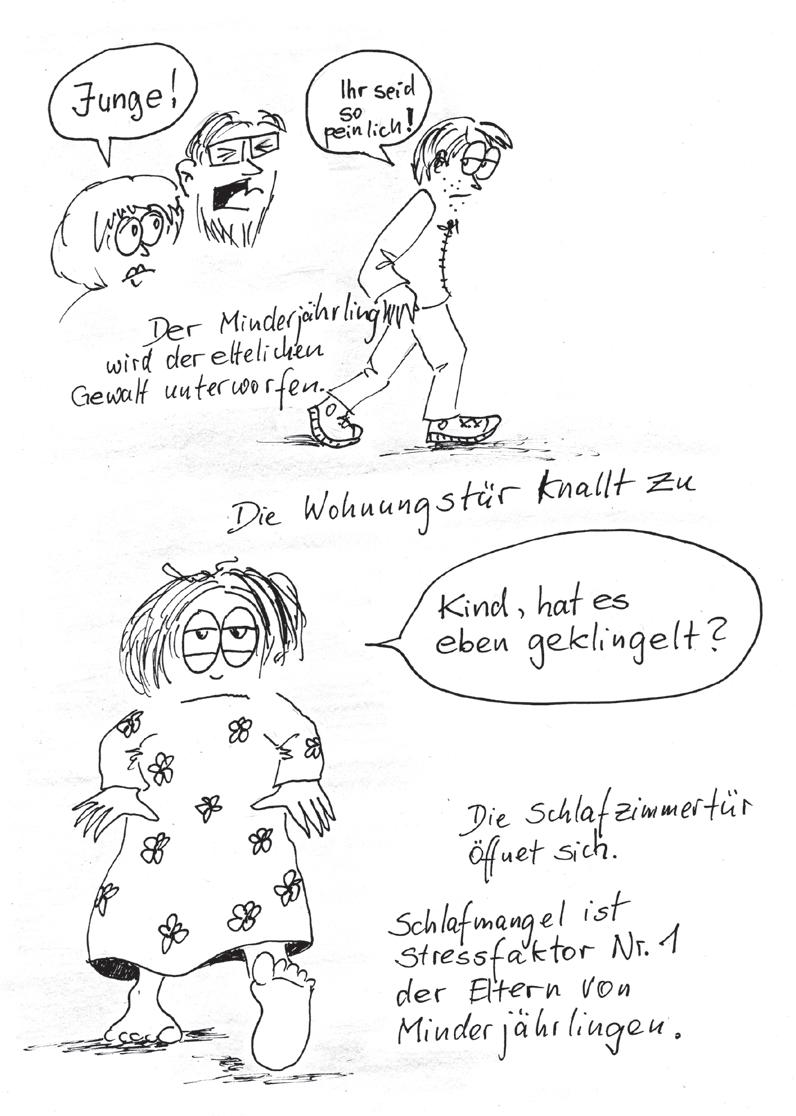 Junge!
Ihr seid
so
peinlich!
Der Minderjährling
wird der eltelichen
Gewalt unterworfen.
Die Wohnungstür knallt zu
Kind, hat es
eben geklingelt?
Die Schlafzimmertür
öffnet sich.
Schlafmangel ist
Stressfaktor Nr. 1
der Eltern von
Minderjährlingen.